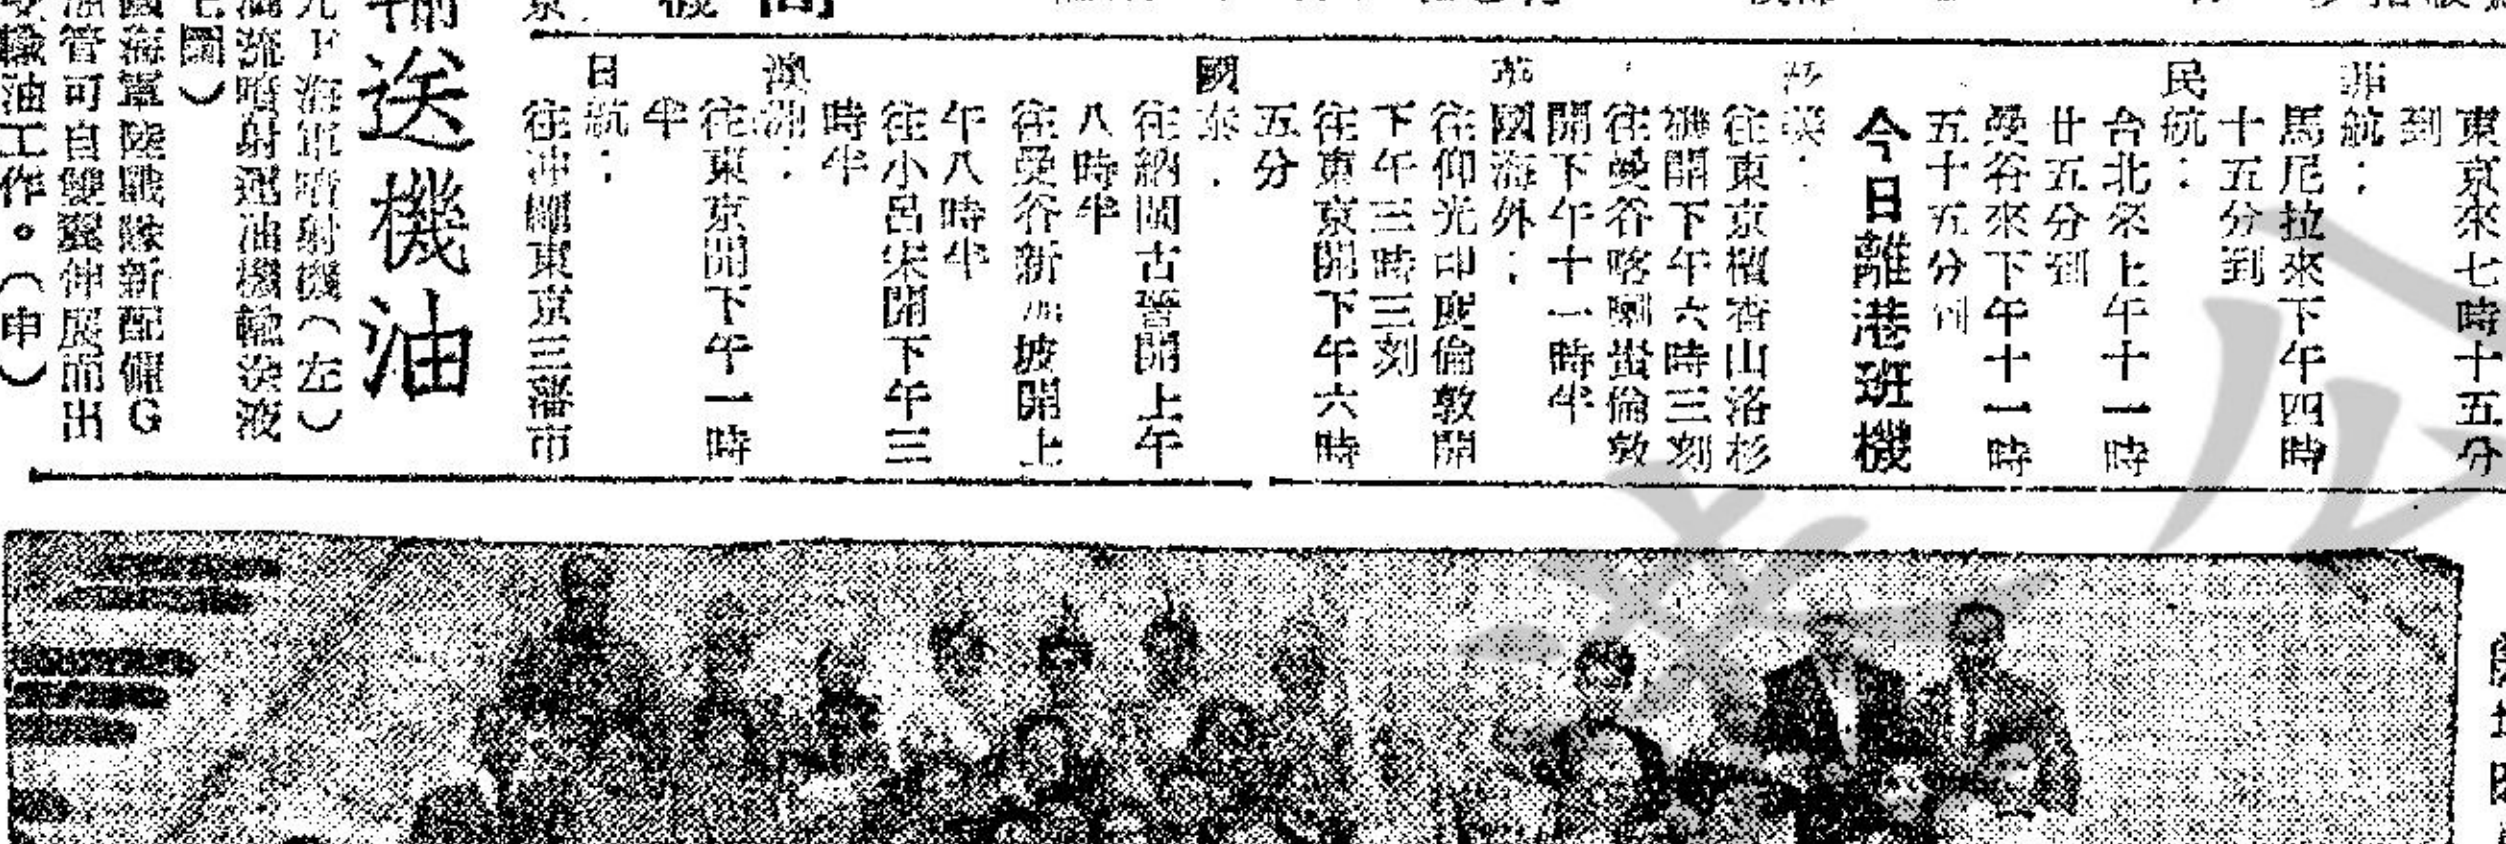 東京來七時十五分
到
菲航：
馬尼拉來下午四時
十五分到
民航：
台北來上午十一時
廿五分到
曼谷來下午十一時
五十五分到
今日離港班機
泛美：
往東京檀香山洛杉
磯開下午六時三刻
往曼谷喀喇蚩倫敦
開下午十一時半
英國海外：
往仰光印度倫敦開
下午三時三刻
往東京開下午六時
五分
國泰：
往納閩古晉開上午
八時半
往曼谷新加坡開上
午八時半
往小呂宋開下午三
時半
澳洲：
往東京開下午一時
半
日航：
往沖繩東京三藩市
輸送機油
海軍噴射機（左）
流噴射運油機輸送液
圖）
海軍陸戰隊新配備G
油管可自雙翼伸展而出
油工作。（申）